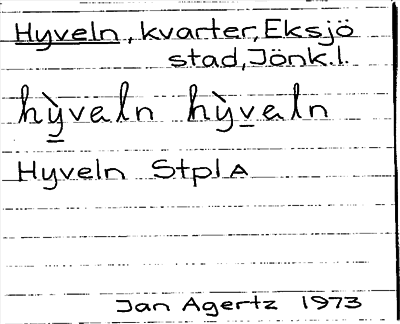 Hyveln, kvarter, Eksjö
stad, Jönk.l.
hỳveln hỳveln
Hyveln StplA
Jan Agertz 1973